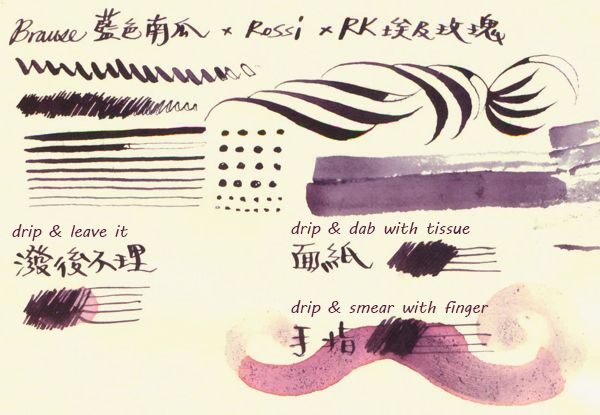 Brause 藍色南瓜 × Rossi × RK 埃及玫瑰
drip & leave it
潑後不理
drip & dab with tissue
面紙
drip & smear with finger
手指